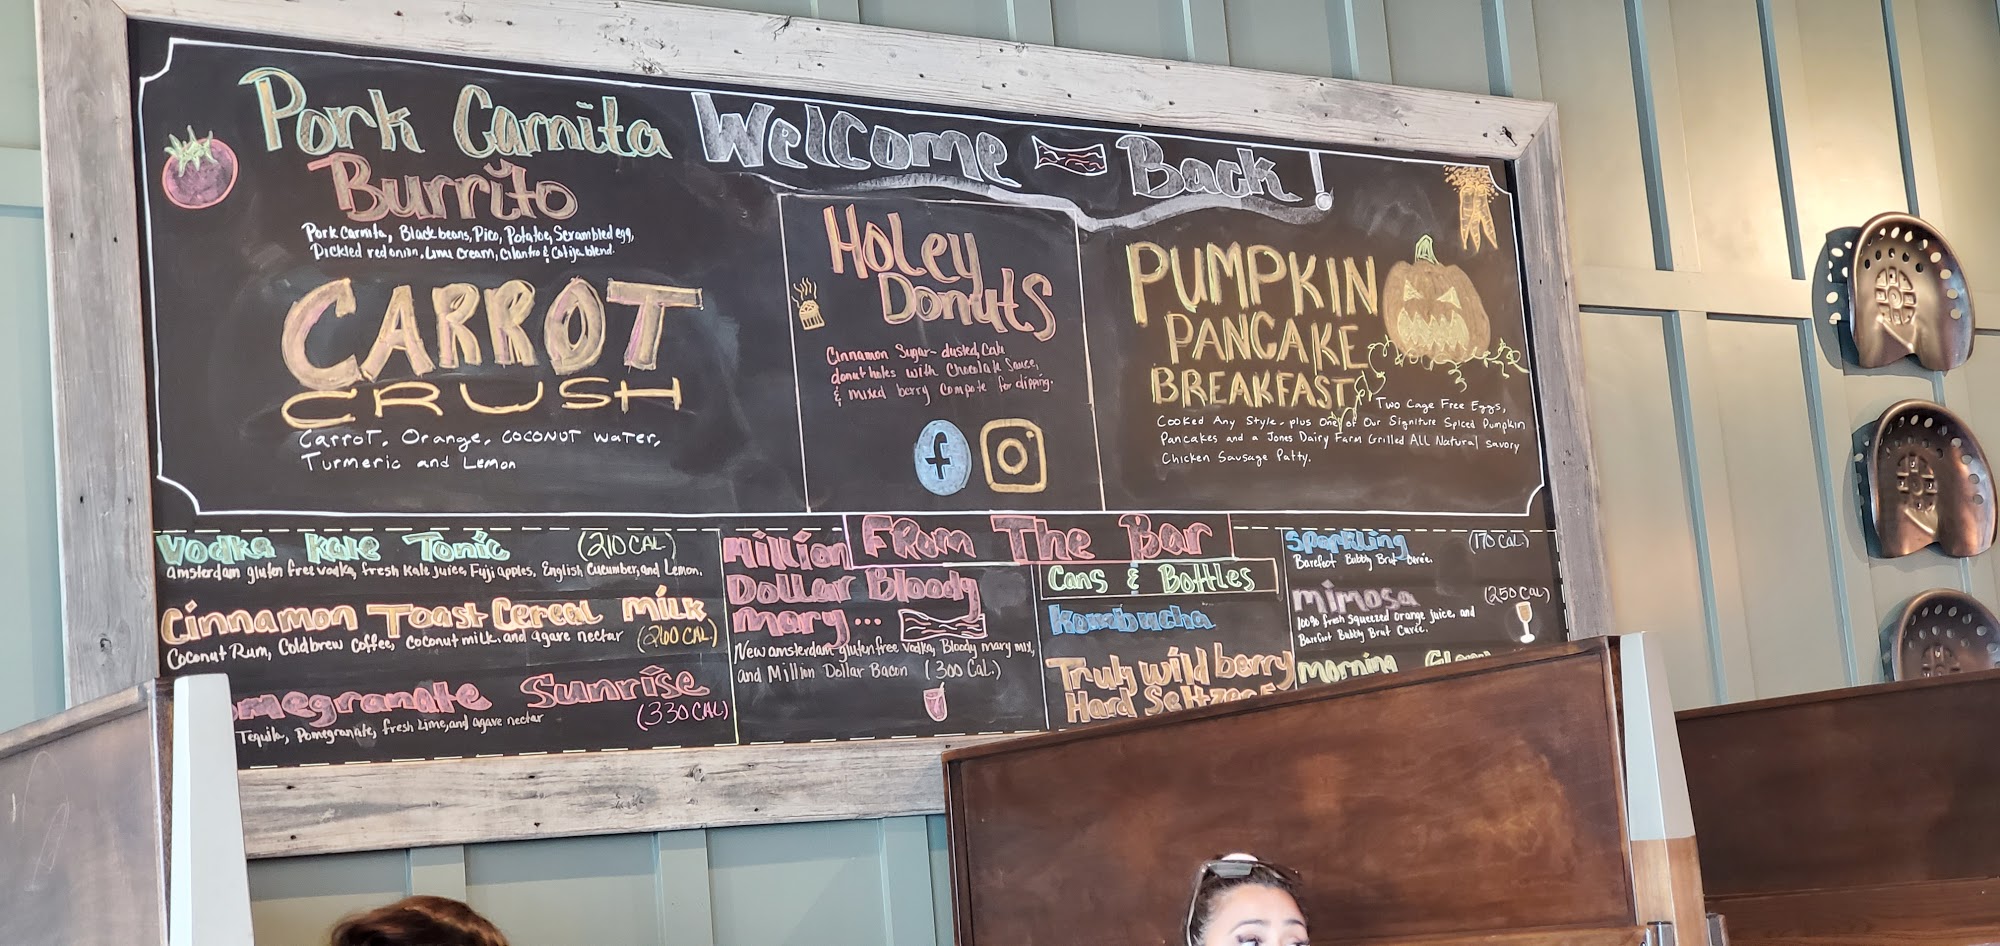 Welcome Back!
Pork Carnita
Burrito
Pork Carnita, Black beans, Pico, Potatoe, Scrambled egg,
Pickled red onion, Lime Cream, Cilantro & Cotija blend.
CARROT
CRUSH
Carrot, Orange, coconut water,
Turmeric and Lemon
Holey
Donuts
Cinnamon Sugar-dusted, Cake
donut holes with Chocolate Sauce,
& mixed berry Compote for dipping.
f
PUMPKIN
PANCAKE
BREAKFAST
Two Cage Free Eggs,
Cooked Any Style, plus One of Our Signiture Spiced Pumpkin
Pancakes and a Jones Dairy Farm Grilled All Natural savory
Chicken Sausage Patty.
From The Bar
Vodka Kale Tonic (210 CAL)
Amsterdam gluten free vodka, fresh kale juice, Fuji apples, English Cucumber, and Lemon.
Cinnamon Toast Cereal Milk
Coconut Rum, Coldbrew Coffee, Coconut milk, and agave nectar (260 CAL)
megranate Sunrise
Tequila, Pomegranate, fresh Lime, and agave nectar (330 CAL)
Million
Dollar Bloody
Mary...
New amsterdam gluten free vodka, Bloody mary mix,
and Million Dollar Bacon (300 Cal.)
Cans & Bottles
Kombucha
Truly wild berry
Hard Seltzer
Sparkling (170 Cal)
Barefoot Bubbly Brut Cuvée.
mimosa (250 CAL)
100% fresh squeezed orange juice, and
Barefoot Bubbly Brut Cuvée.
morning